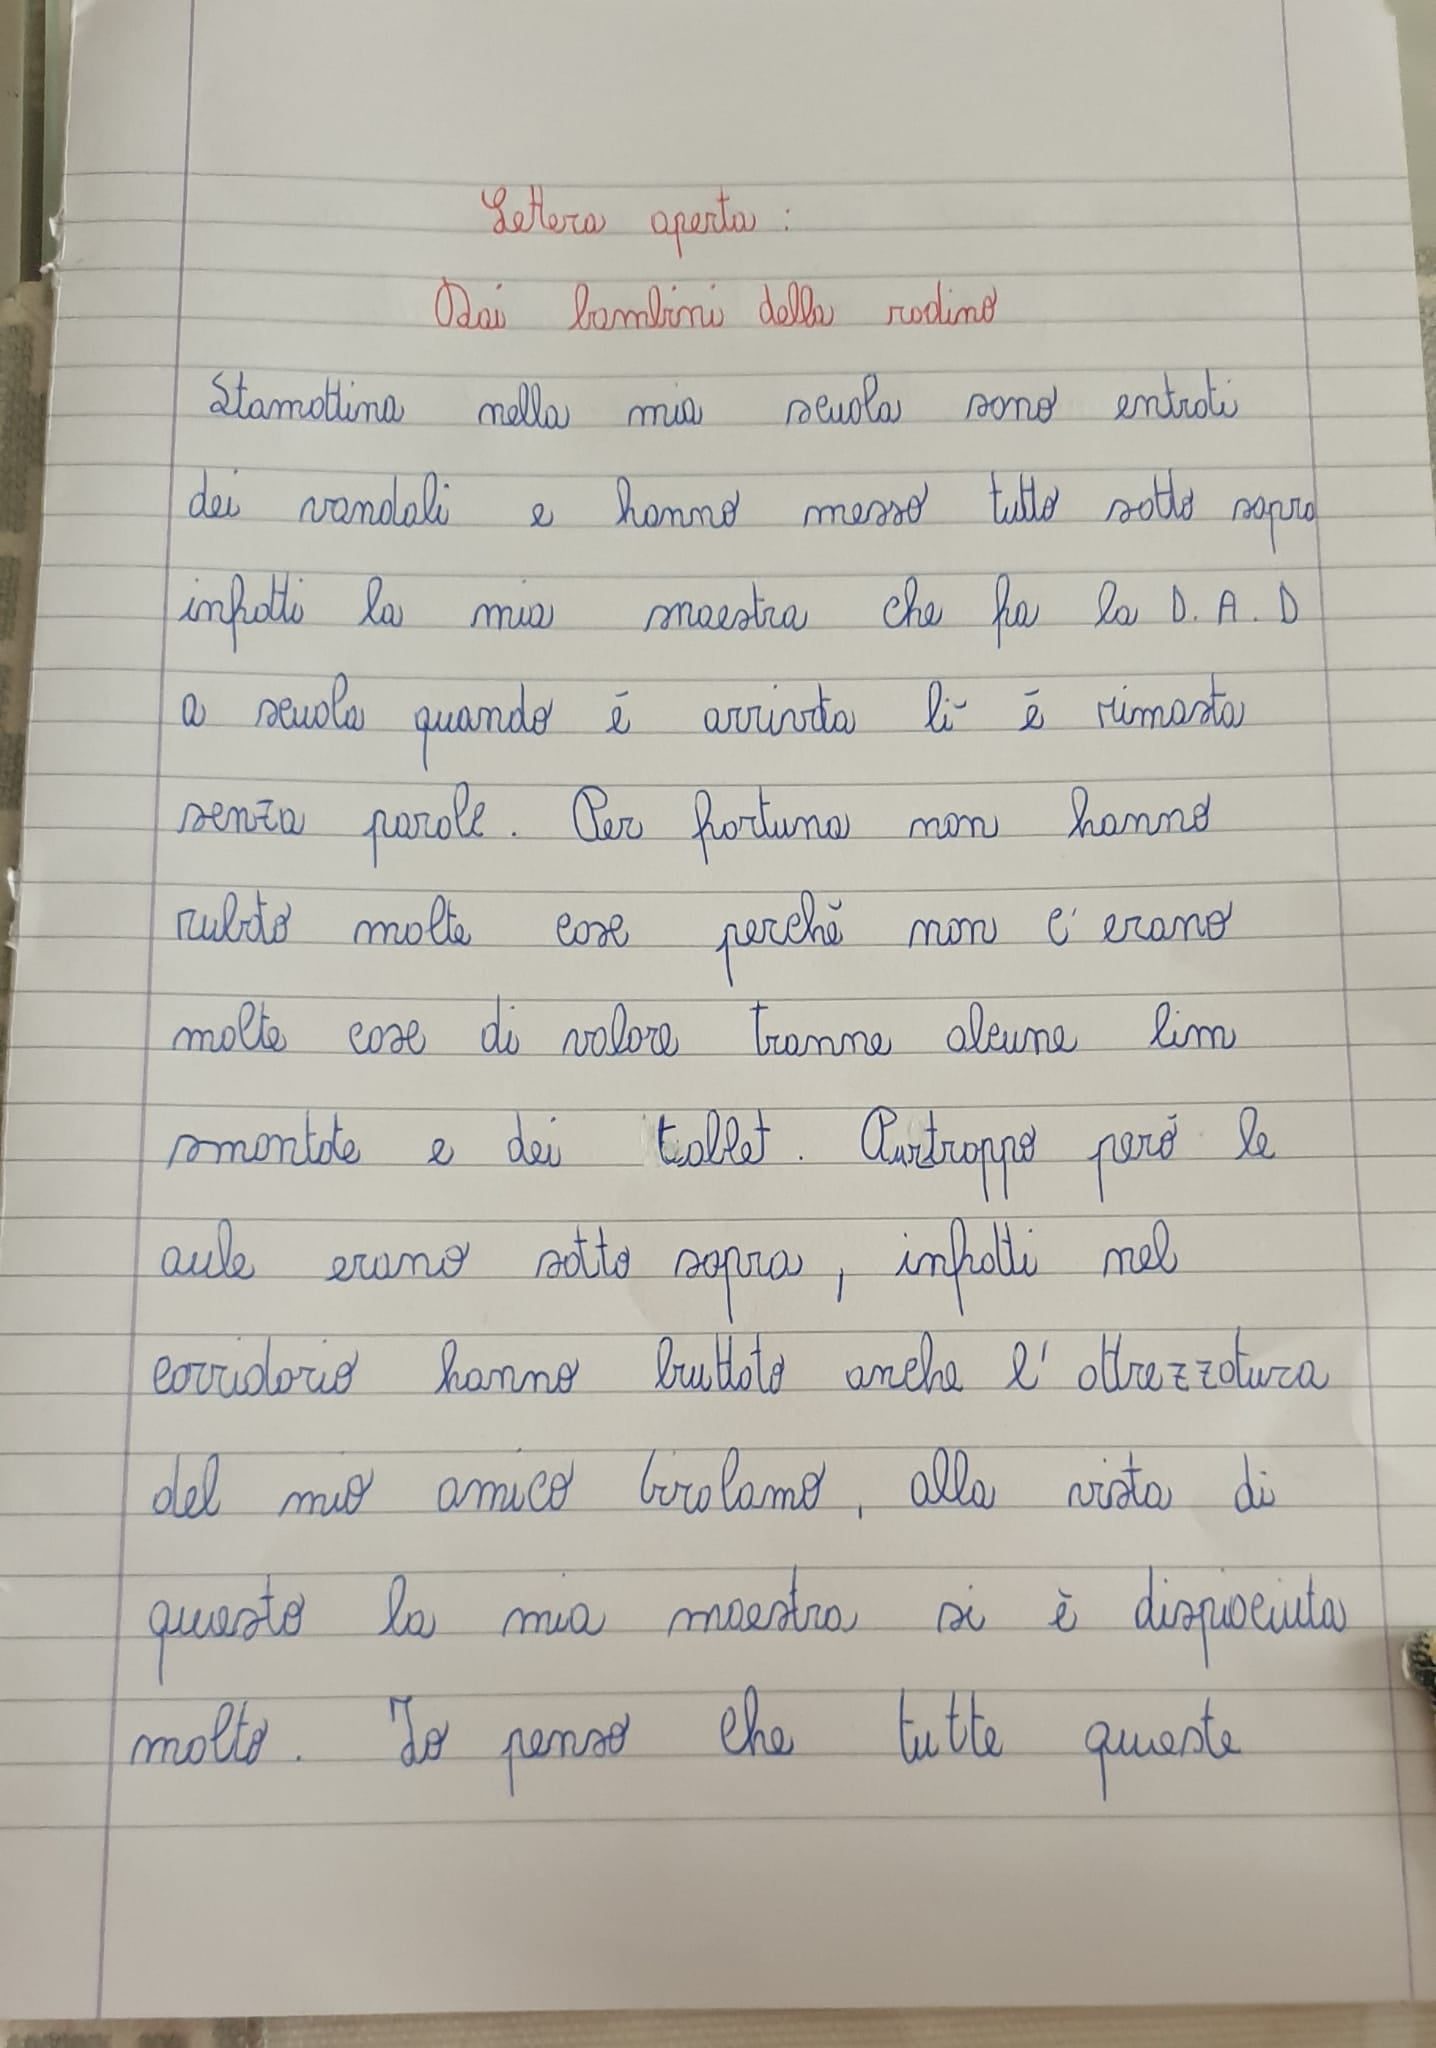 Lettera aperta:
Dai bambini della rodino
Stamattina nella mia scuola sono entrati
dei vandali e hanno messo tutto sotto sopra
infatti la mia maestra che fa la D.A.D
a scuola quando è arrivata lì è rimasta
senza parole. Per fortuna non hanno
rubato molte cose perchè non c'erano
molte cose di valore tranne alcune lim
smontate e dei tablet. Purtroppo però le
aule erano sotto sopra, infatti nel
corridorio hanno buttato anche l'attrezzatura
del mio amico Girolamo, alla vista di
questo la mia maestra si è dispiaciuta
molto. Io penso che tutte queste